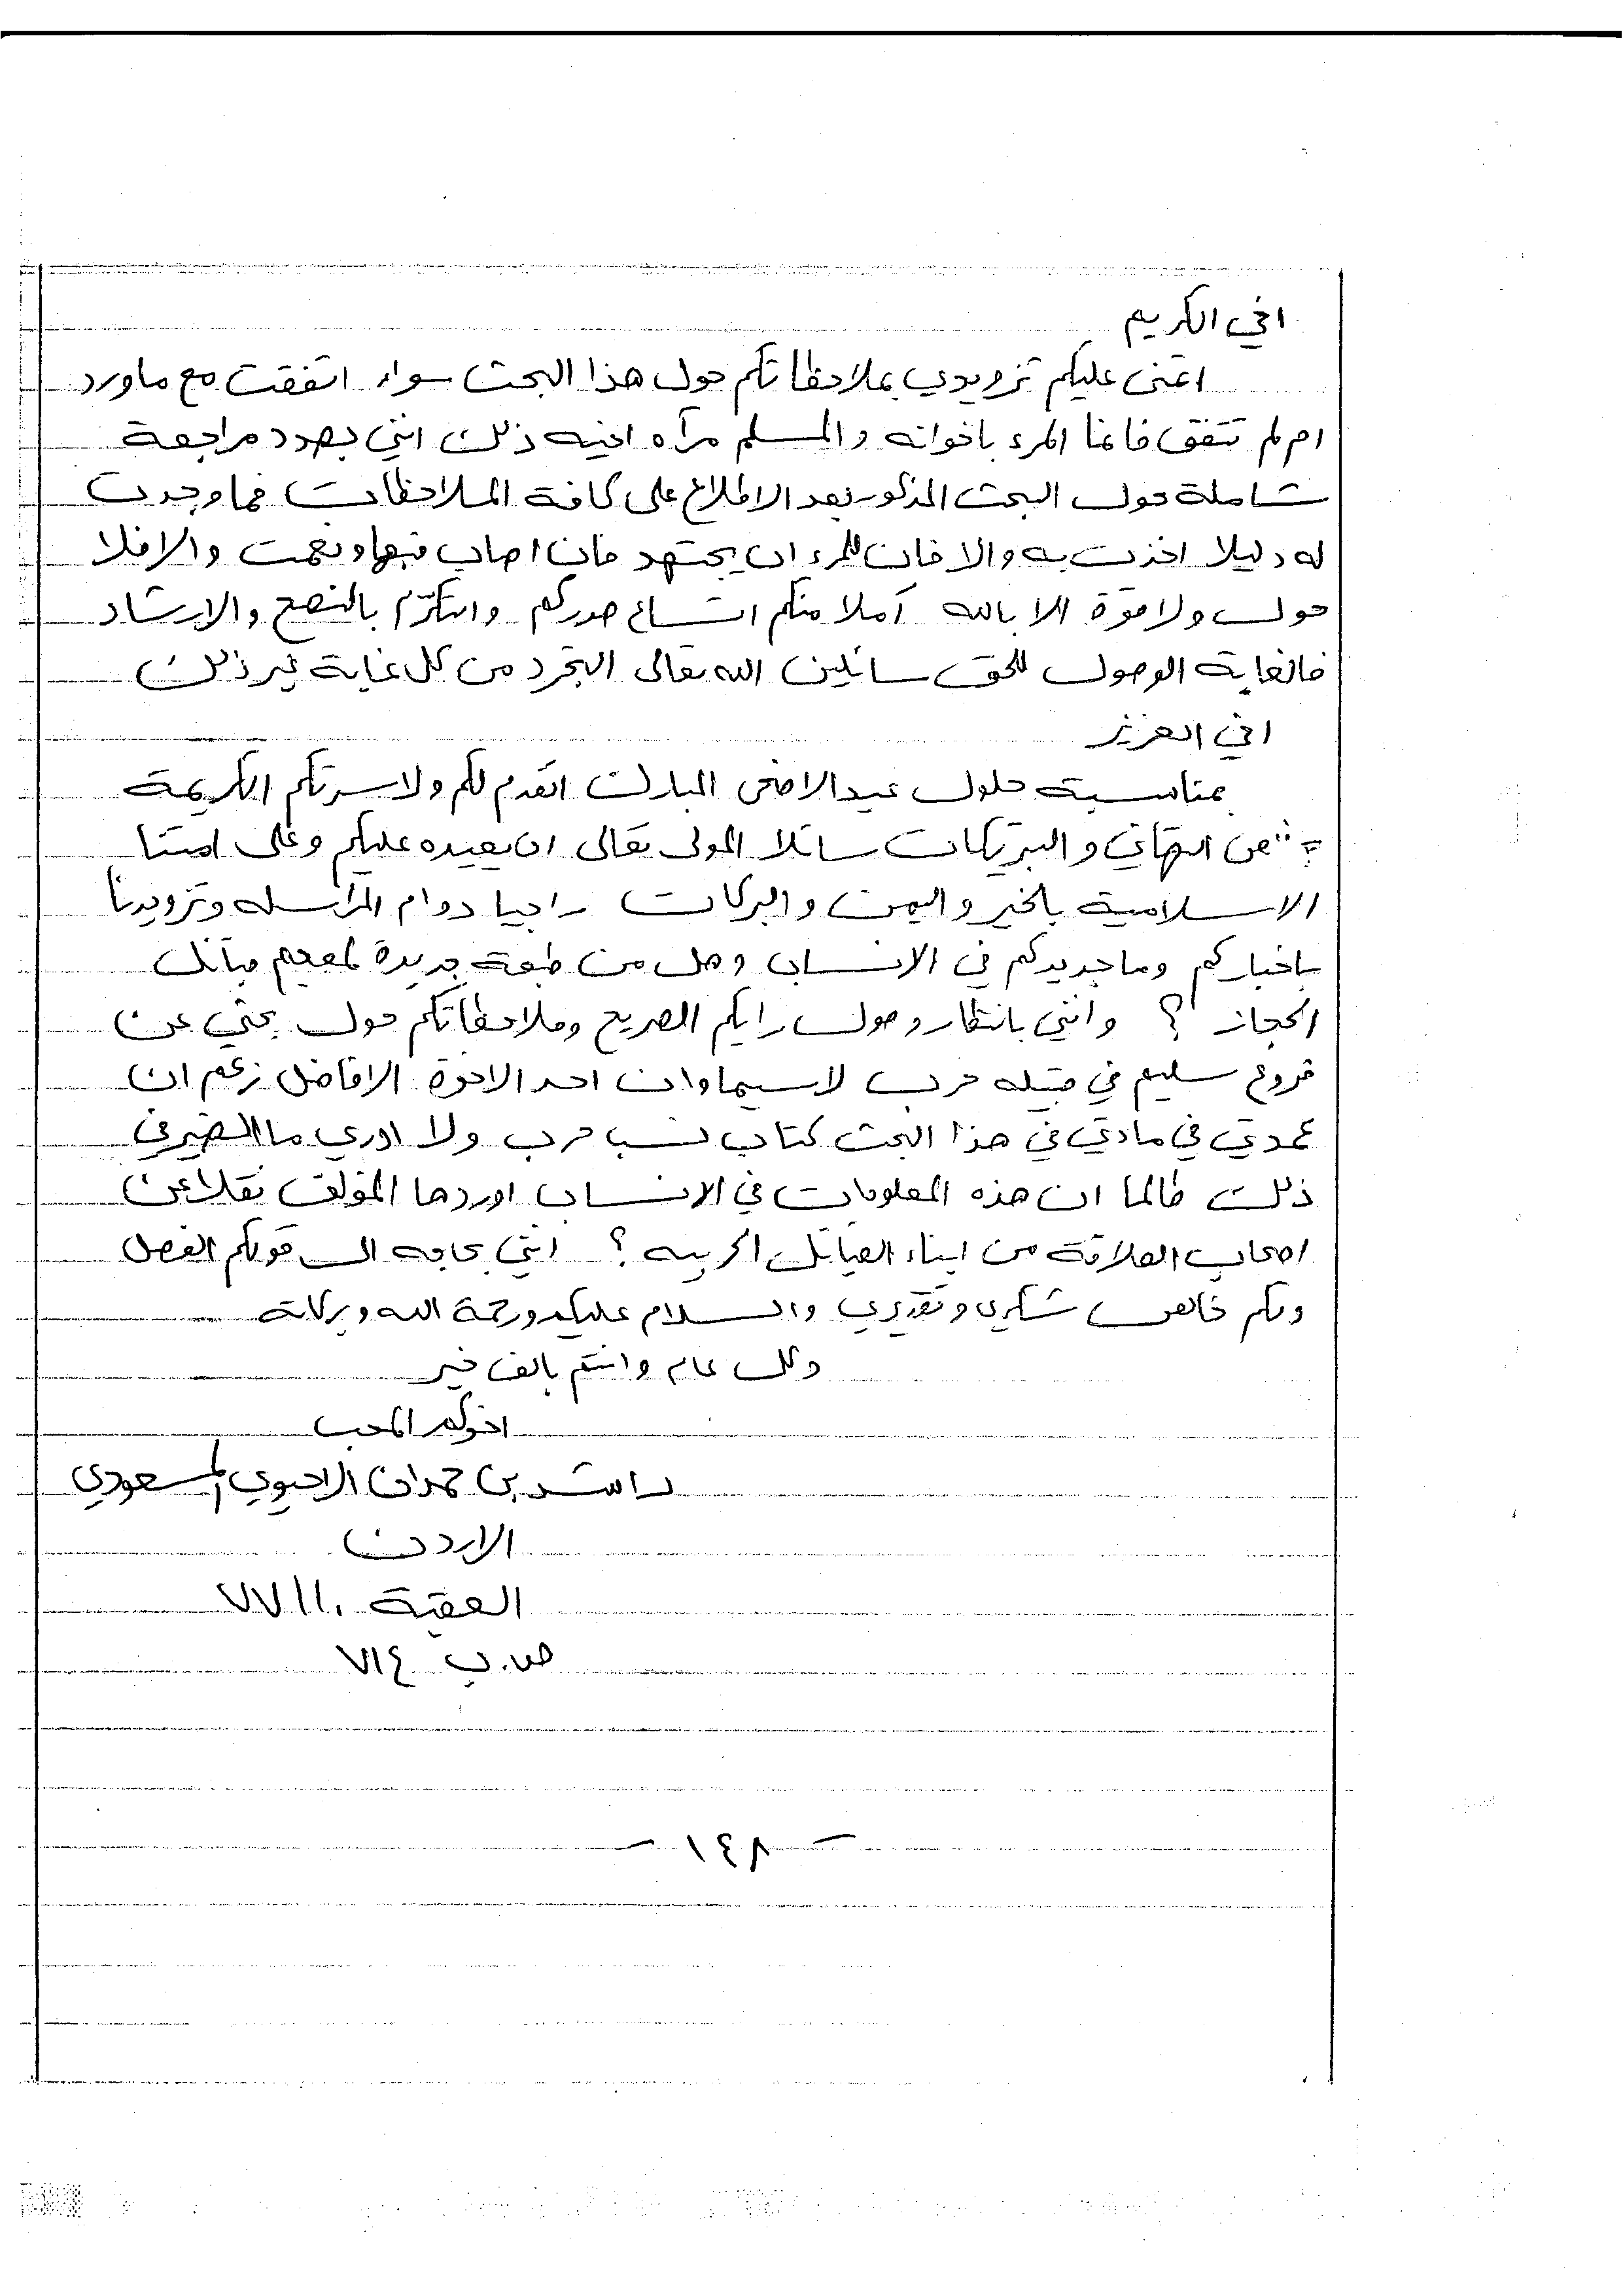 اخي الكريم
اتمنى عليكم تزويدي بملاحظاتكم حول هذا البحث سواء اتفقت مع ماورد
ام لم تتفق فانما المرء باخوانه والمسلم مرآه اخيه ذلك انني بصدد مراجعة
شاملة حول البحث المذكور بعد الاطلاع على كافة الملاحظات فما وجدت
له دليلا اخذت به والا فان للمرء ان يجتهد فان اصاب فبها ونعمت والا فلا
حول ولا قوة الا بالله آملا منكم اتساع صدركم والتكرّم بالنصح والارشاد
فالغاية الوصول للحق سائلين الله تعالى التجرد من كل غاية غير ذلك
اخي العزيز
بمناسبة حلول عيد الاضحى المبارك اتقدم لكم ولاسرتكم الكريمة
التهاني والتبريكات سائلا المولى تعالى ان يعيده عليكم وعلى امتنا
الاسلامية بالخير واليمن والبركات راجيا دوام المراسله وتزويدنا
باخباركم وما جديدكم في الانساب وهل من طبعة جديدة لمعجم قبائل
الحجاز ؟ وانني بانتظار وصول رايكم الصريح وملاحظاتكم حول بحثي عن
فروع سليم في قبيله حرب لاسيما وان احد الاخوة الافاضل زعم ان
عمدتي في مادتي في هذا البحث كتاب نسب حرب ولا ادري ما الضير في
ذلك طالما ان هذه المعلومات في الانساب اوردها المؤلف نقلا عن
اصحاب العلاقة من ابناء القبائل الحربيه ؟ انني بحاجه الى قولكم الفصل
ولكم خالص شكري وتقديري والسلام عليكم ورحمة الله وبركاته
وكل عام وانتم بالف خير
اخوكم المحب
راشد بن حمدان الاحيوي المسعودي
الاردن
العقبة ٧٧١١٠
ص.ب ٧١٤
- ١٤٨ -